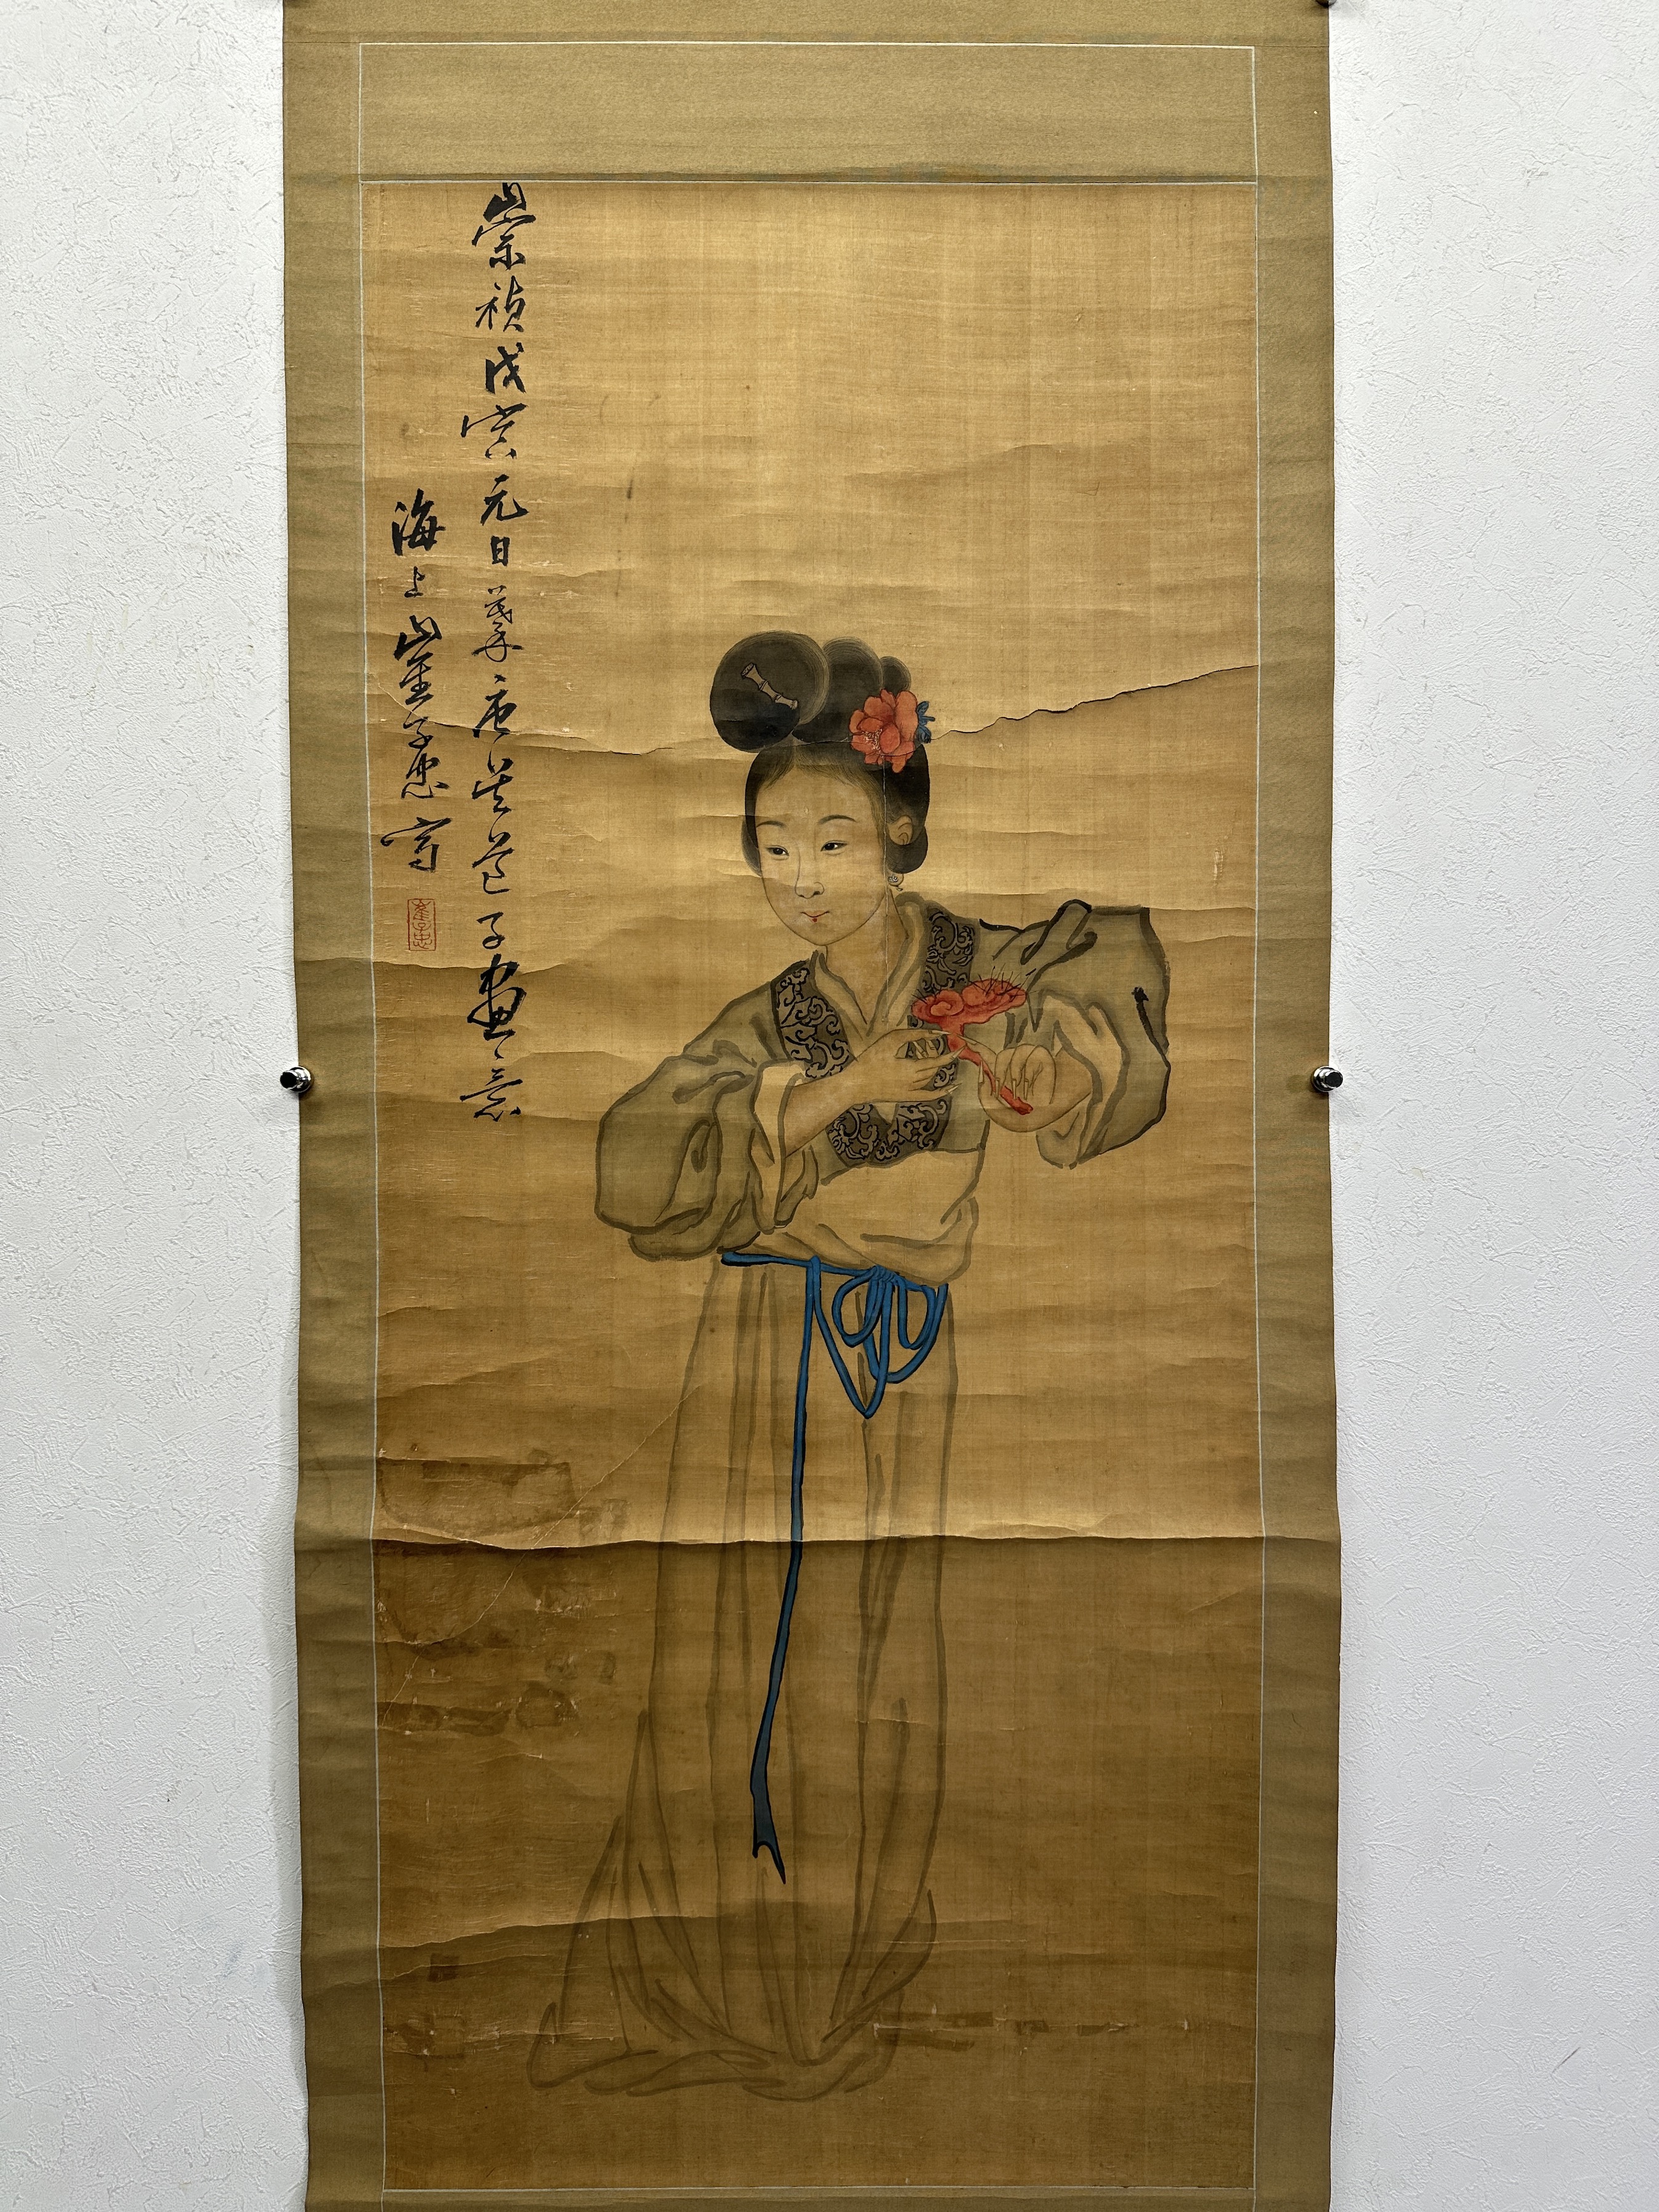 崇禎戊寅元日摹唐吳道子畫意
海上崔子忠寫
崔子忠